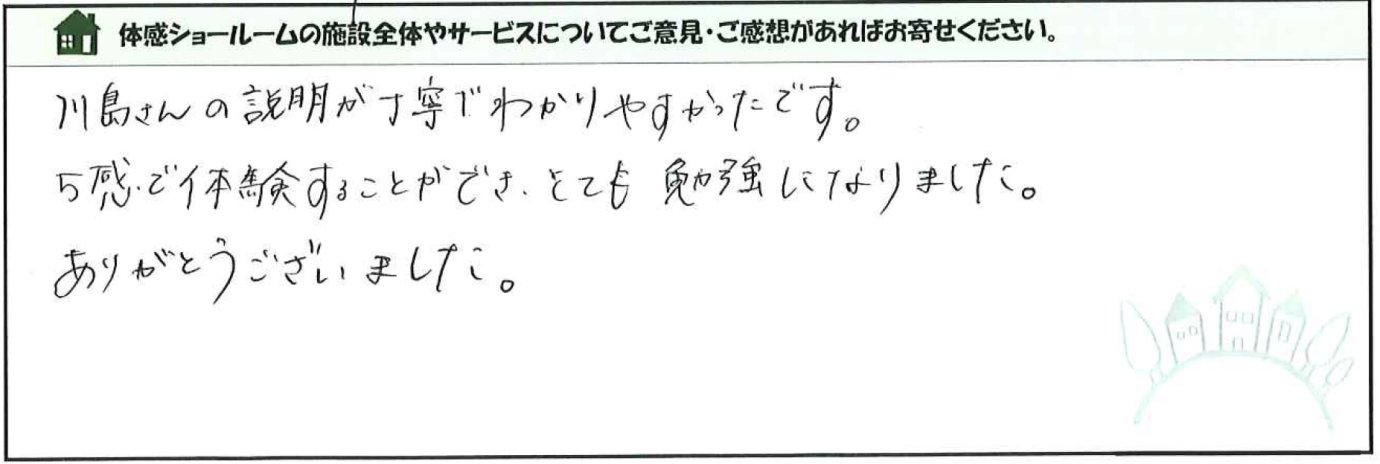 体感ショールームの施設全体やサービスについてご意見・ご感想があればお寄せください。
川島さんの説明が丁寧でわかりやすかったです。
5感で体験することができ、とても勉強になりました。
ありがとうございました。